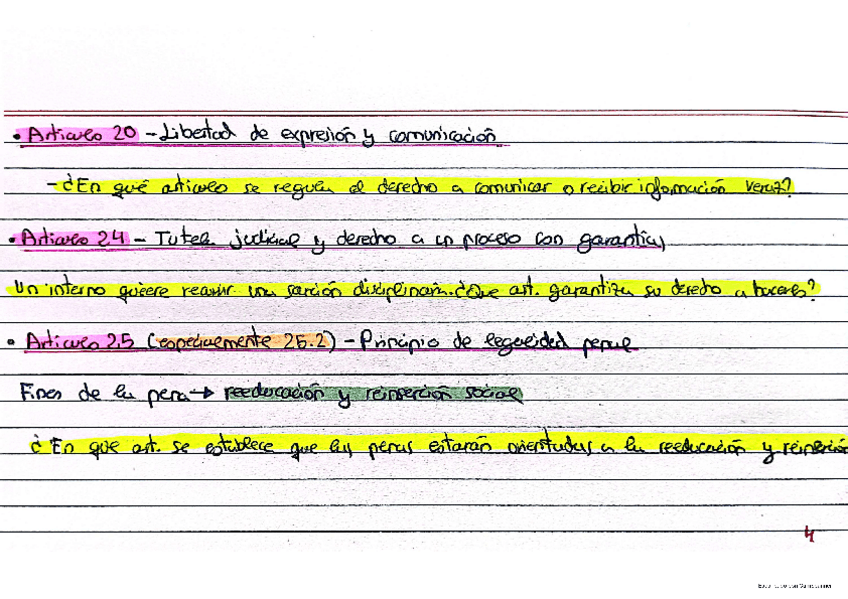 • Artículo 20 - Libertad de expresión y comunicación
- ¿En qué artículo se regula el derecho a comunicar o recibir información veraz?
• Artículo 24 - Tutela judicial y derecho a un proceso con garantías
Un interno quiere recurrir una sanción disciplinaria. ¿Que art. garantiza su derecho a hacerlo?
• Artículo 25 (especialmente 25.2) - Principio de legalidad penal
Fines de la pena → reeducación y reinserción social
¿En que art. se establece que las penas estarán orientadas a la reeducación y reinserción
4